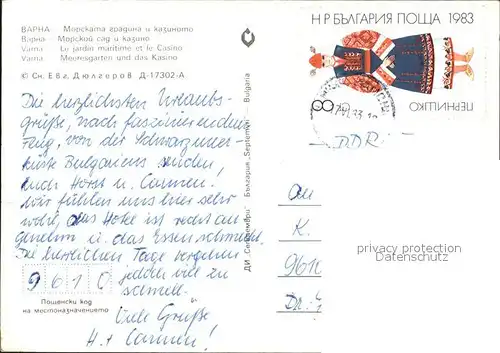 ВАРНА Морската градина и казиното
Варна Морской сад и казино
Varna Le jardin maritime et le Casino
Varna Meeresgarten und das Kasino
© Сн. Евг. Дюлгеров Д-17302-А
Н Р БЪЛГАРИЯ ПОЩА 1983
8
ПЕРНИШКО
ДИ „Септември“ България „Septemvri“ Bulgaria
Die herzlichsten Urlaubs-
grüße, nach faszinierendem
Flug, von der Schwarzmeer-
küste Bulgariens senden,
euch Horst u. Carmen.
Wir fühlen uns hier sehr
wohl, das Hotel ist recht an-
genehm u. das Essen schmeckt.
Die herrlichen Tage vergehen
jedoch viel zu
schnell.
Viele Grüße
H. + Carmen!
9610
Пощенски код
на местоназначението
DDR
An
K.
9610
privacy protection
Datenschutz